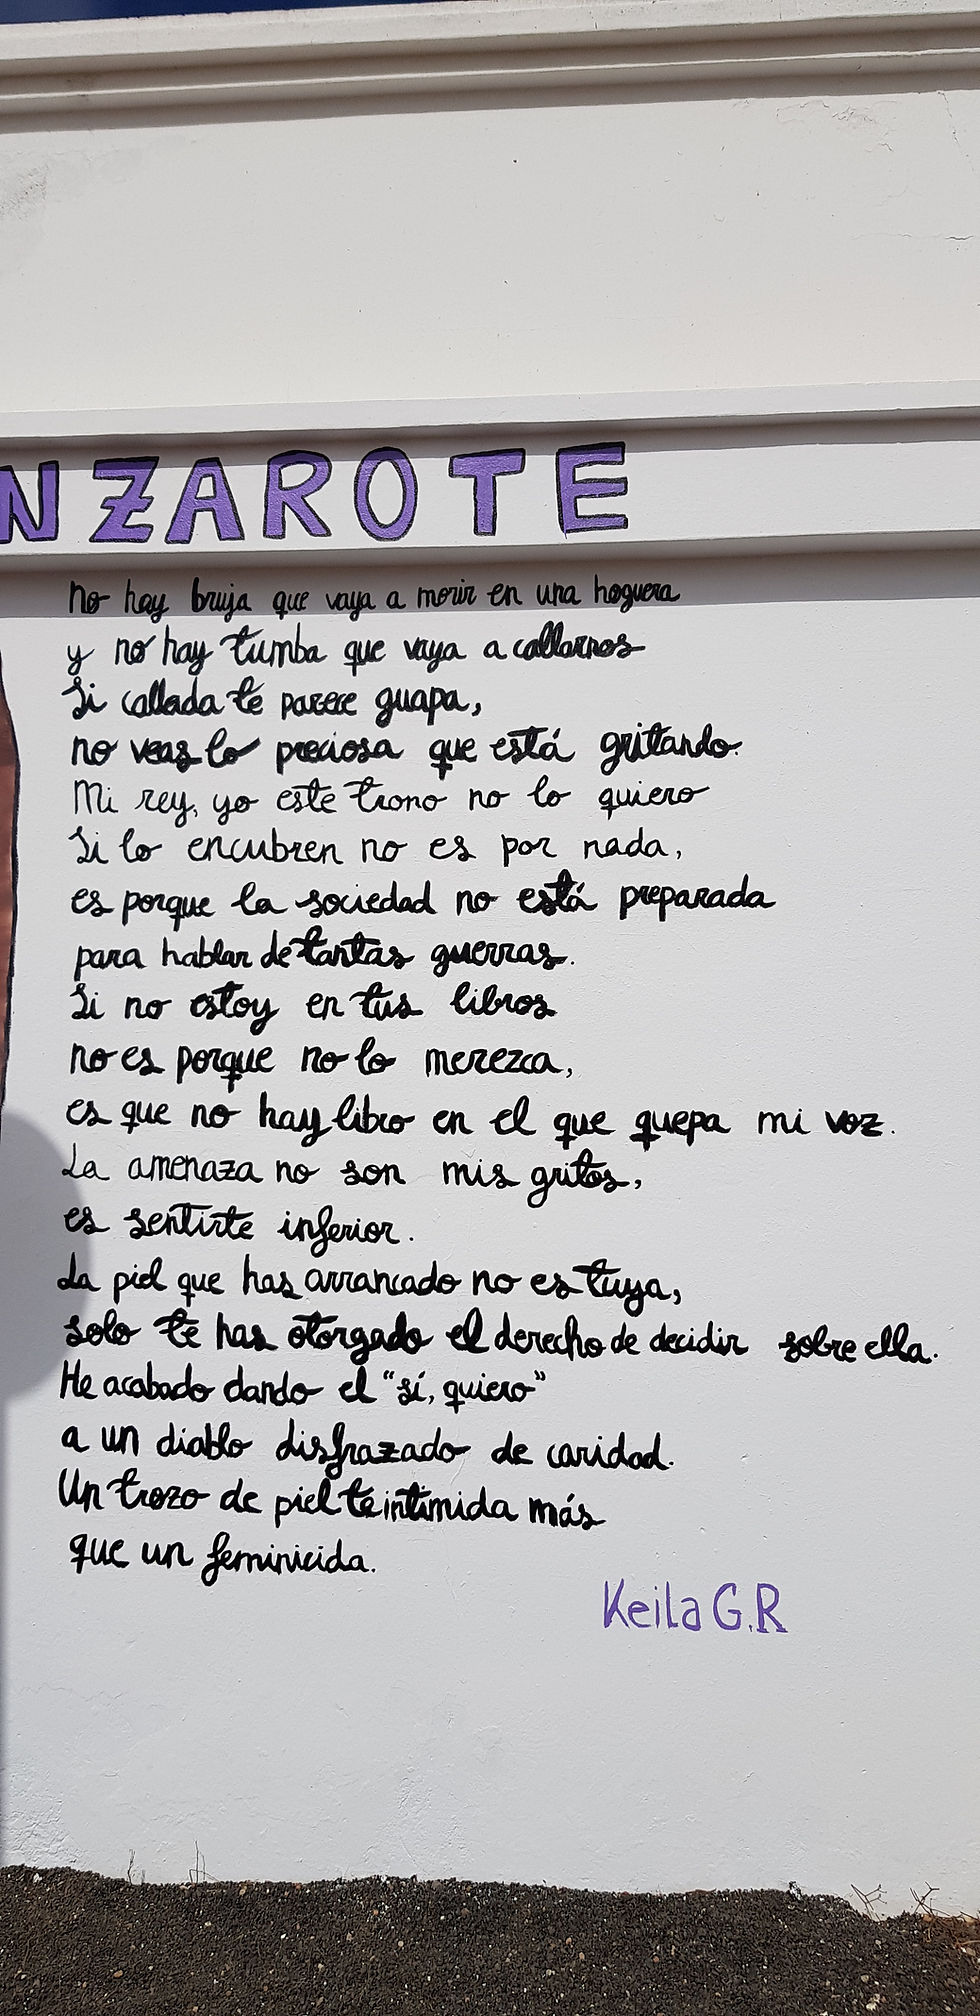 NZAROTE
No hay bruja que vaya a morir en una hoguera
y no hay tumba que vaya a callarnos
Si callada te parece guapa,
no veas lo preciosa que está gritando.
Mi rey, yo este trono no lo quiero
Si lo encubren no es por nada,
es porque la sociedad no está preparada
para hablar de tantas guerras.
Si no estoy en tus libros
no es porque no lo merezca,
es que no hay libro en el que quepa mi voz.
La amenaza no son mis gritos,
es sentirte inferior.
La piel que has arrancado no es tuya,
solo te has otorgado el derecho de decidir sobre ella.
He acabado dando el "sí, quiero"
a un diablo disfrazado de caridad.
Un trozo de piel te intimida más
que un feminicida.
Keila G.R